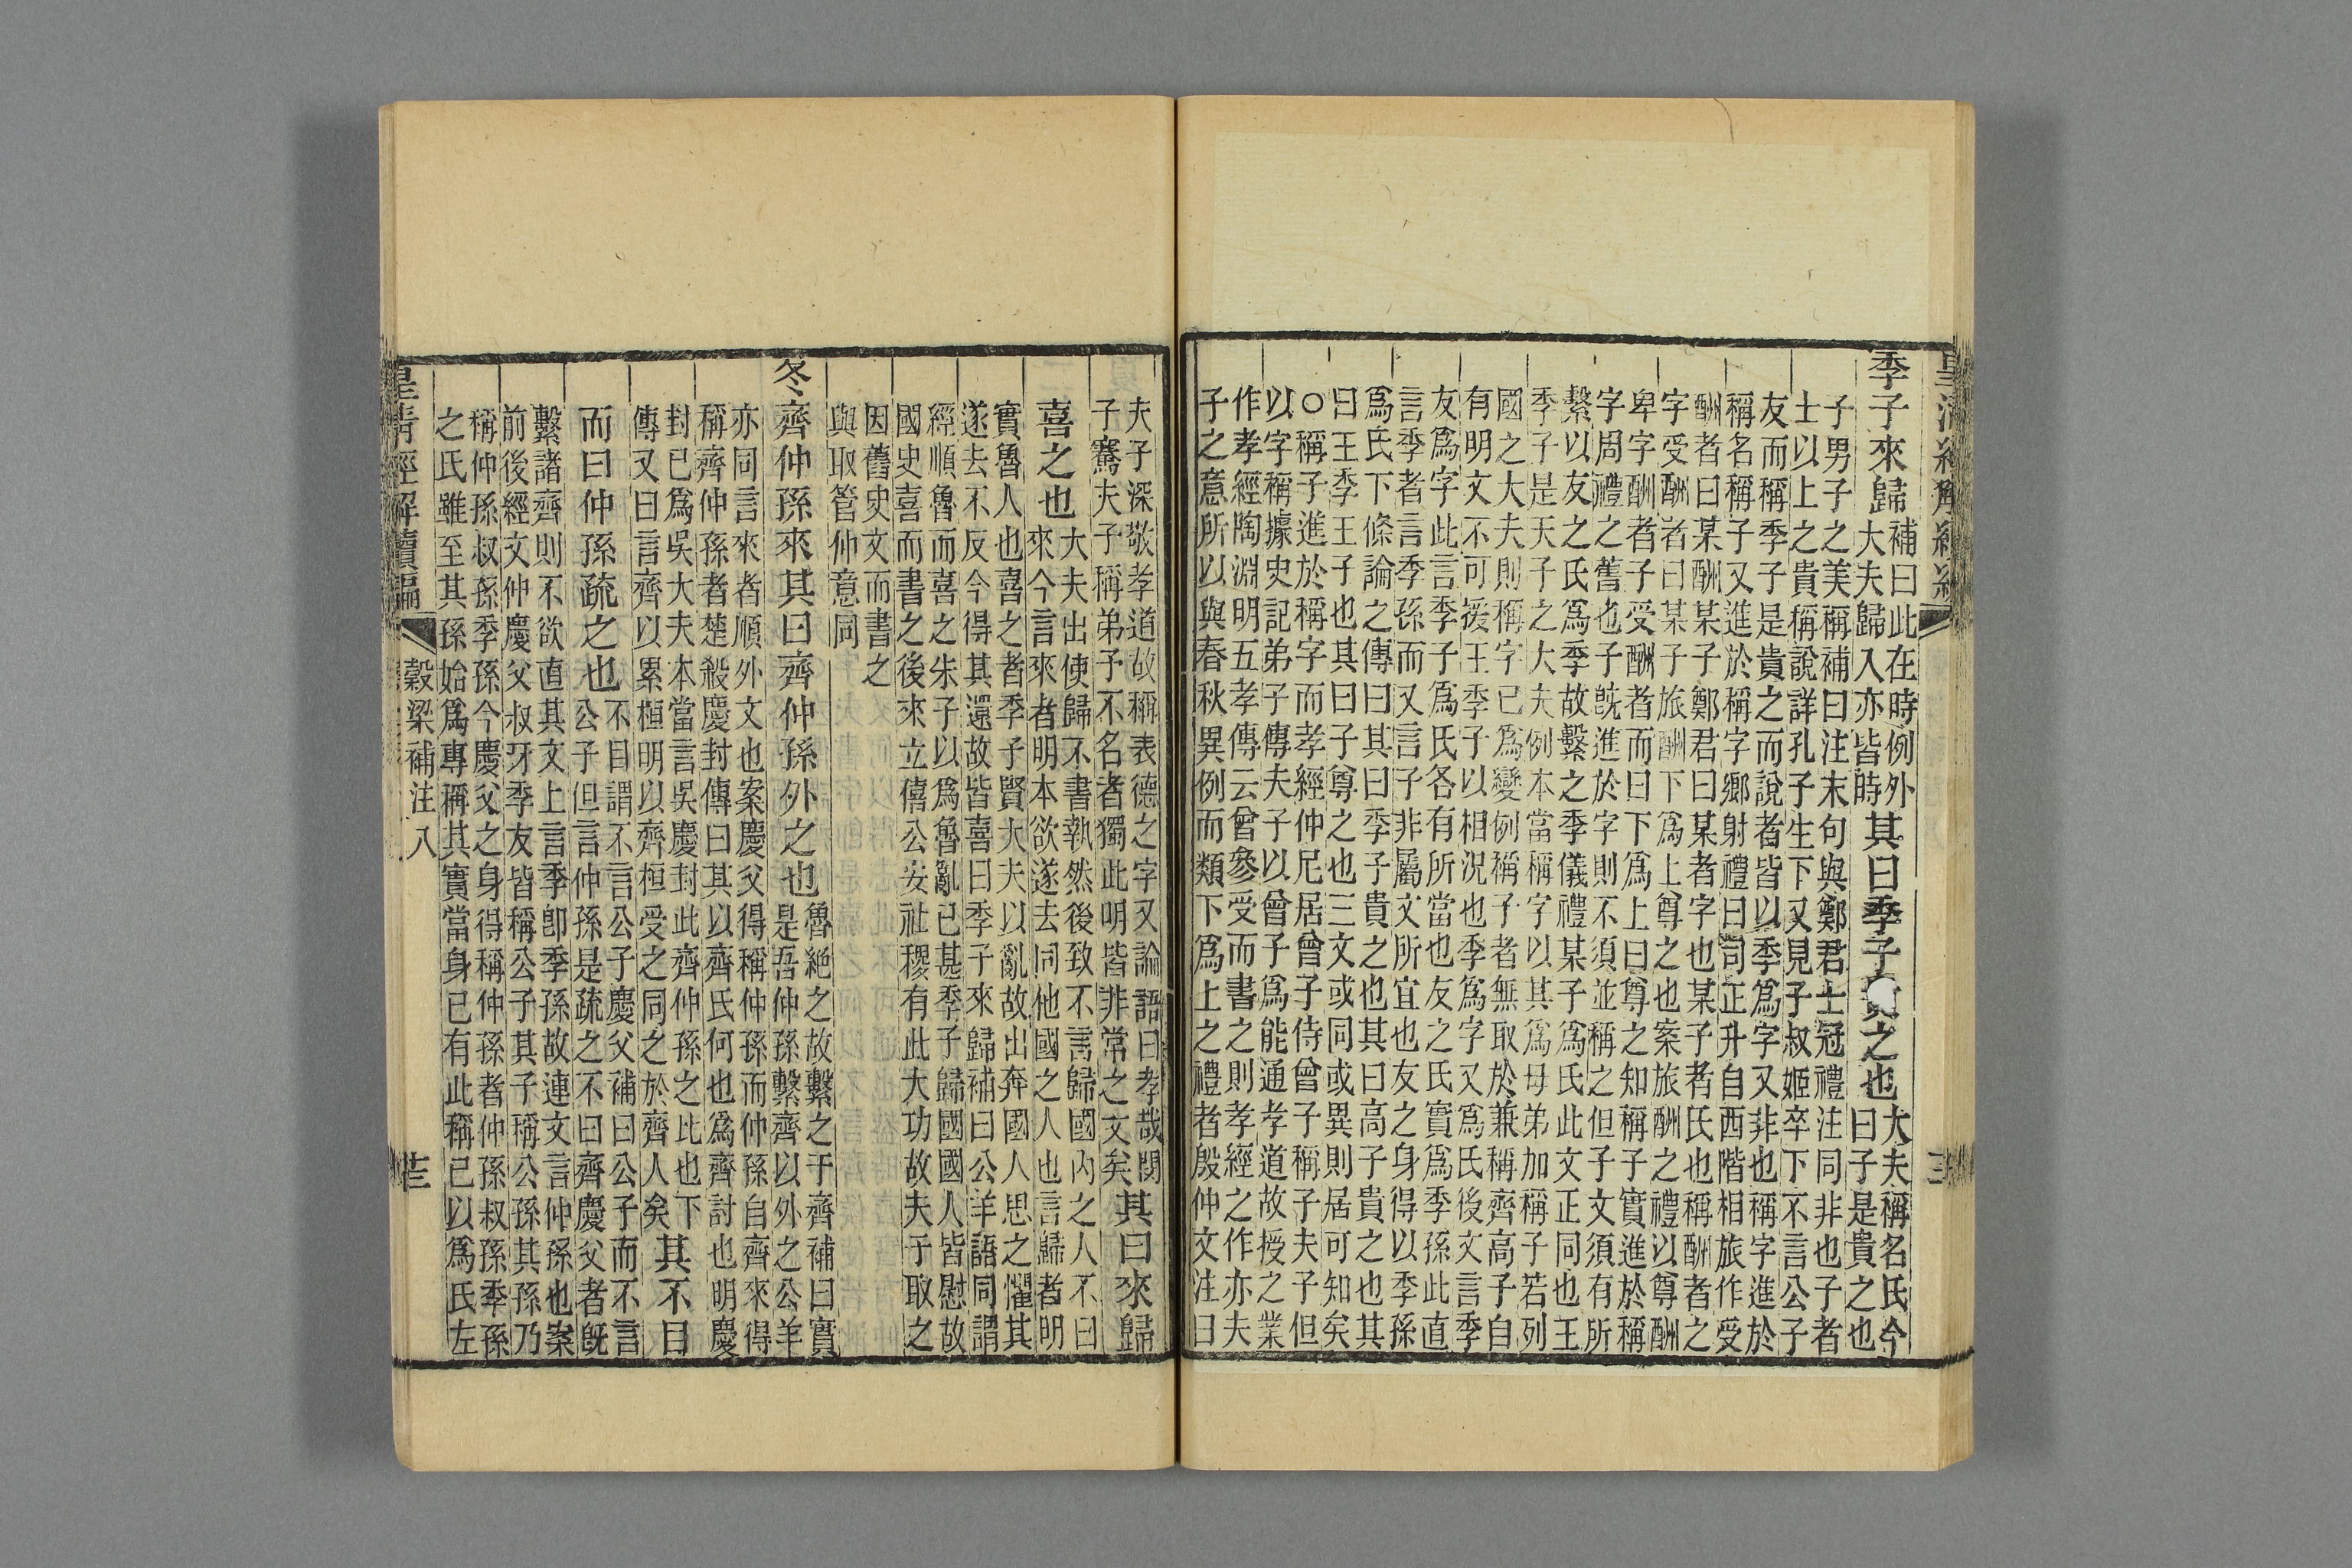 季子來歸
補曰此在時例外
大夫歸入亦皆時
其曰季子之也
大夫稱名氏今
曰子是貴之也
子男子之美稱補曰注末句與鄭君士冠禮注同非也子者
士以上之貴稱說詳孔子生下又見子叔姬卒下不言公子
友而稱季子是貴之而說者皆以季爲字又非也稱字進於
稱名稱子又進於稱字鄉射禮曰司正升自西階相旅作受
酬者曰某酬某子鄭君曰某者字也某子者氏也稱酬者之
字受酬者曰某子旅酬下爲上尊之也案旅酬之禮以尊酬
卑字酬者子受酬者而曰下爲上曰尊之知稱子實進於稱
字周禮之舊也子旣進於字則不須並稱之但子文須有所
繫以友之氏爲季故繫之季儀禮某子爲氏此文正同也王
季子是天子之大夫例本當稱字以其爲母弟加稱子若列
國之大夫則稱字已爲變例稱子者無取於兼稱齊高子自
有明文不可援王季子以相況也季爲字又爲氏後文言季
友爲字此言季子爲氏各有所當也友之氏實爲季孫此直
言季者言季孫而又言子非屬文所宜也友之身得以季孫
爲氏下條論之傳曰其曰季子貴之也其曰高子貴之也其
曰王季王子也其曰子尊之也三文或同或異則居可知矣
○稱子進於稱字而孝經仲尼居曾子侍曾子稱子夫子但
以字稱據史記弟子傳夫子以曾子爲能通孝道故授之業
作孝經陶淵明五孝傳云曾參受而書之則孝經之作亦夫
子之意所以與春秋異例而類下爲上之禮者殷仲文注曰
夫子深敬孝道故稱表德之字又論語曰孝哉閔
子騫夫子稱弟子不名者獨此明皆非常之文矣
其曰來歸
喜之也
大夫出使歸不書執然後致不言歸國內之人不曰
來今言來者明本欲遂去同他國之人也言歸者明
實魯人也喜之者季子賢大夫以亂故出奔國人思之懼其
遂去不反今得其還故皆喜曰季子來歸補曰公羊語同謂
經順魯而喜之朱子以爲魯亂已甚季子歸國國人皆慰故
國史喜而書之後來立僖公安社稷有此大功故夫子取之
因舊史文而書之
與取管仲意同
冬齊仲孫來其曰齊仲孫外之也
魯絶之故繫之于齊補曰實
是吾仲孫繫齊以外之公羊
亦同言來者順外文也案慶父得稱仲孫而仲孫自齊來得
稱齊仲孫者楚殺慶封傳曰其以齊氏何也爲齊討也明慶
封已爲吳大夫本當言吳慶封此齊仲孫之比也下
傳又曰言齊以累桓明以齊桓受之同之於齊人矣
其不目
而曰仲孫疏之也
不目謂不言公子慶父補曰公子而不言
公子但言仲孫是疏之不曰齊慶父者旣
繫諸齊則不欲直其文上言季卽季孫故連文言仲孫也案
前後經文仲慶父叔牙季友皆稱公子其子稱公孫其孫乃
稱仲孫叔孫季孫今慶父之身得稱仲孫者仲孫叔孫季孫
之氏雖至其孫始爲專稱其實當身已有此稱已以爲氏左
皇淸經解續編
穀梁補注八